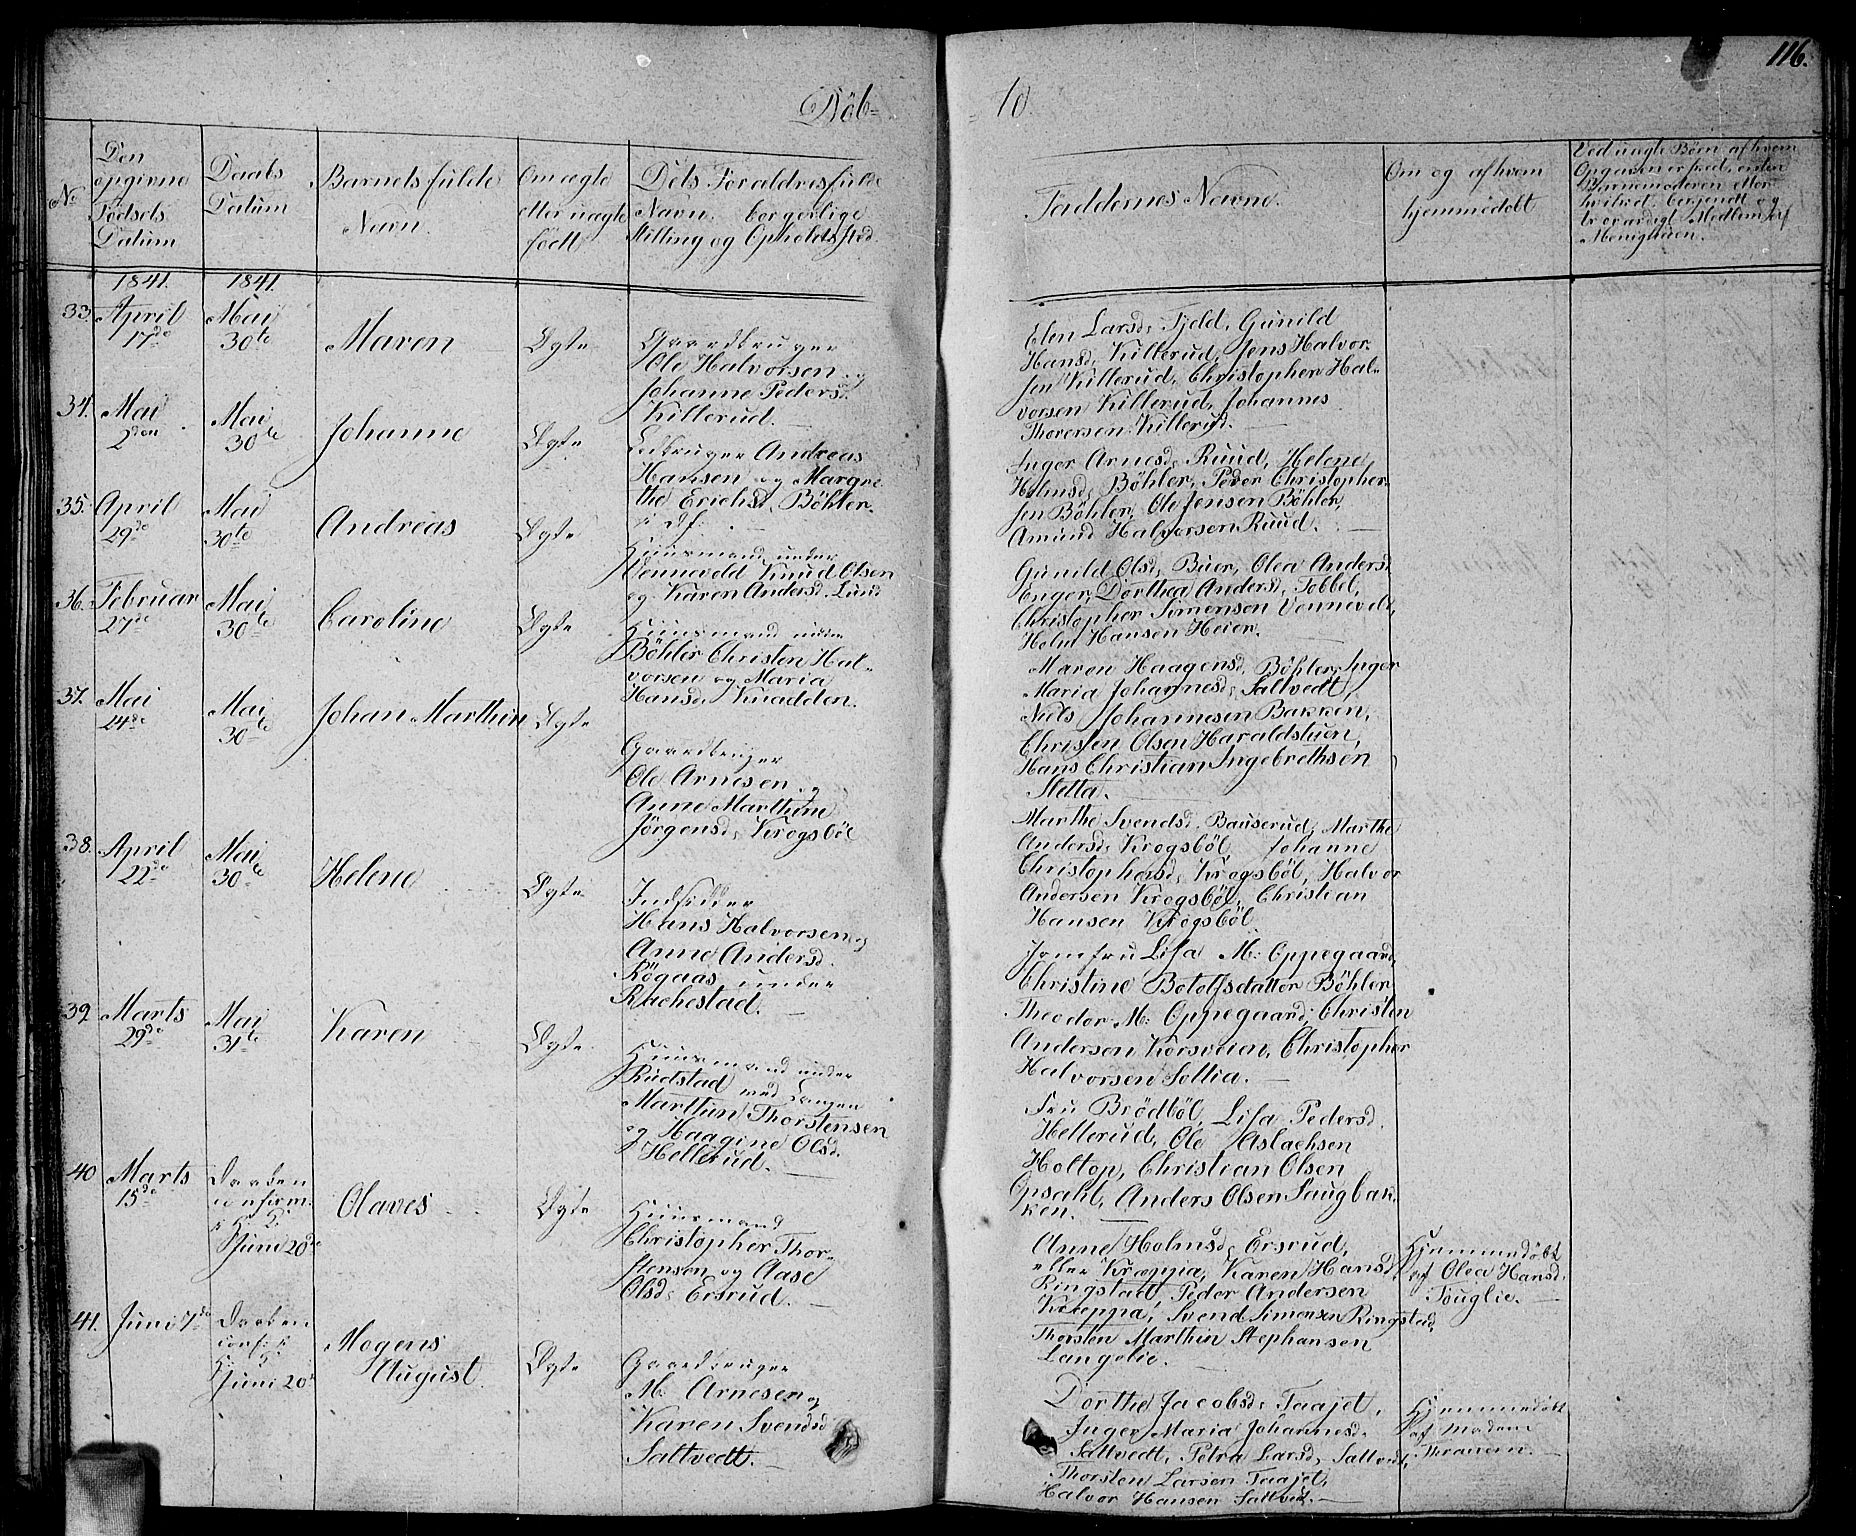 116.
Döb=
=te.
No
Den opgivne Fødsels Datum
Daabs Datum
Barnets fulde Navn.
Om ægte eller uægte født
Dets Forældres fulde Navn. borgerlige Stilling og Opholdssted.
Faddernes Navne.
Om og af hvem hjemmedøbt
Ved uægte Børn af hvem
Opgaven er skeed, enten
Barnemoderen eller
hvilket bekjendt og
troværdigt Medlem af
Menigheden.
1841.
1841.
33.
April
17de
Mai
30te
Maren
Ægte
Gaardbruger
Ole Halvorsen og
Johanne Pedersd.
Killerud.
Elen Larsd. Fjeld, Gunild
Hansd. Killerud, Jens Halvor=
sen Killerud, Christopher Hal=
vorsen Killerud, Johannes
Thorersen Killerud.
34.
Mai
2den
Mai
30te
Johanne
Ægte
Ledbruger Andreas
Hansen og Margre
the Erichsd. Böhler
Inger Arnesd. Ruud, Helene
Holmsd. Böhler, Peder Christopher
sen Böhler, Ole Jensen Böhler,
Amund Halvorsen Ruud.
35.
April
29de
Mai
30te
Andreas
Ægte
Huusmand under
Vennevold Knud Olsen
og Karen Andersd. Lund
Gunild Olsd. Buer, Olea Andersd.
Enger, Dorthea Andersd. Tobbel,
Christopher Simensen Vennevold,
Holm Hansen Heier.
36.
Februar
27de
Mai
30te
Caroline
Ægte
Huusmand under
Böhler Christen Hal=
vorsen og Maria
Hansd. Knadden.
Maren Haagensd. Böhler, Inger
Maria Johannesd. Saltvedt,
Niels Johannesen Bakken,
Christen Olsen Haraldstuen,
Hans Christian Ingebrethsen
Sletta.
37.
Mai
24de
Mai
30te
Johan Marthin
Ægte
Gaardbruger
Ole Arnesen og
Anne Marthine
Jörgensd. Krogsböl
Marthe Svendsd. Bauserud, Marthe
Andersd. Krogsböl Johanne
Christophersd. Krogsböl, Halvor
Andersen Krogsböl, Christian
Hansen Krogsböl
38.
April
22de
Mai
30te
Helene
Ægte
Indsidder
Hans Halvorsen og
Anne Andersd.
Rögaas under
Rachestad.
Jomfru Lisa M: Oppegaard,
Christine Botolfsdatter Böhler
Theodor M: Oppegaard, Christen
Andersen Korsveien, Christopher
Halvorsen Soltia.
39
Marts
29de
Mai
31te
Karen
Ægte
Huusmand under
Rudstad med Längen
Marthin Thorstensen
og Haagine Olsd.
Hellerud.
Fru Brödböl, Lisa Pedersd.
Hellerud, Ole Aslachsen
Holtop, Christian Olsen
Opsahl, Anders Olsen Saugbak=
ken.
40
Marts
15de
Daaben
confirm.
i K.
Juni 20de
Olaves
Ægte
Huusmand
Christopher Thor=
stensen og Aase
Olsd. Ersrud.
Anne Holmsd. Ersrud,
eller Kræppia, Karen Hansd.
Ringstad, Peder Andersen
Kræppa, Svend Simensen Ringstad,
Thorsten Marthin Stephansen
Langelie.
Hjemmedöbt
af Olea Hansd.
Souglie.
41.
Juni 7de
Daaben
conf. i
K.
Juni 20de
Mogens
August
Ægte
Gaardbruger
M: Arnesen og
Karen Svendsd.
Saltvedt.
Dorthe Jacobsd. Taajet,
Inger Maria Johannesd.
Saltvedt, Petra Larsd. Saltvedt,
Thorsten Larsen Taajet,
Halvor Hansen Saltvedt.
Hjemmedöbt
af Madam
Thranem.